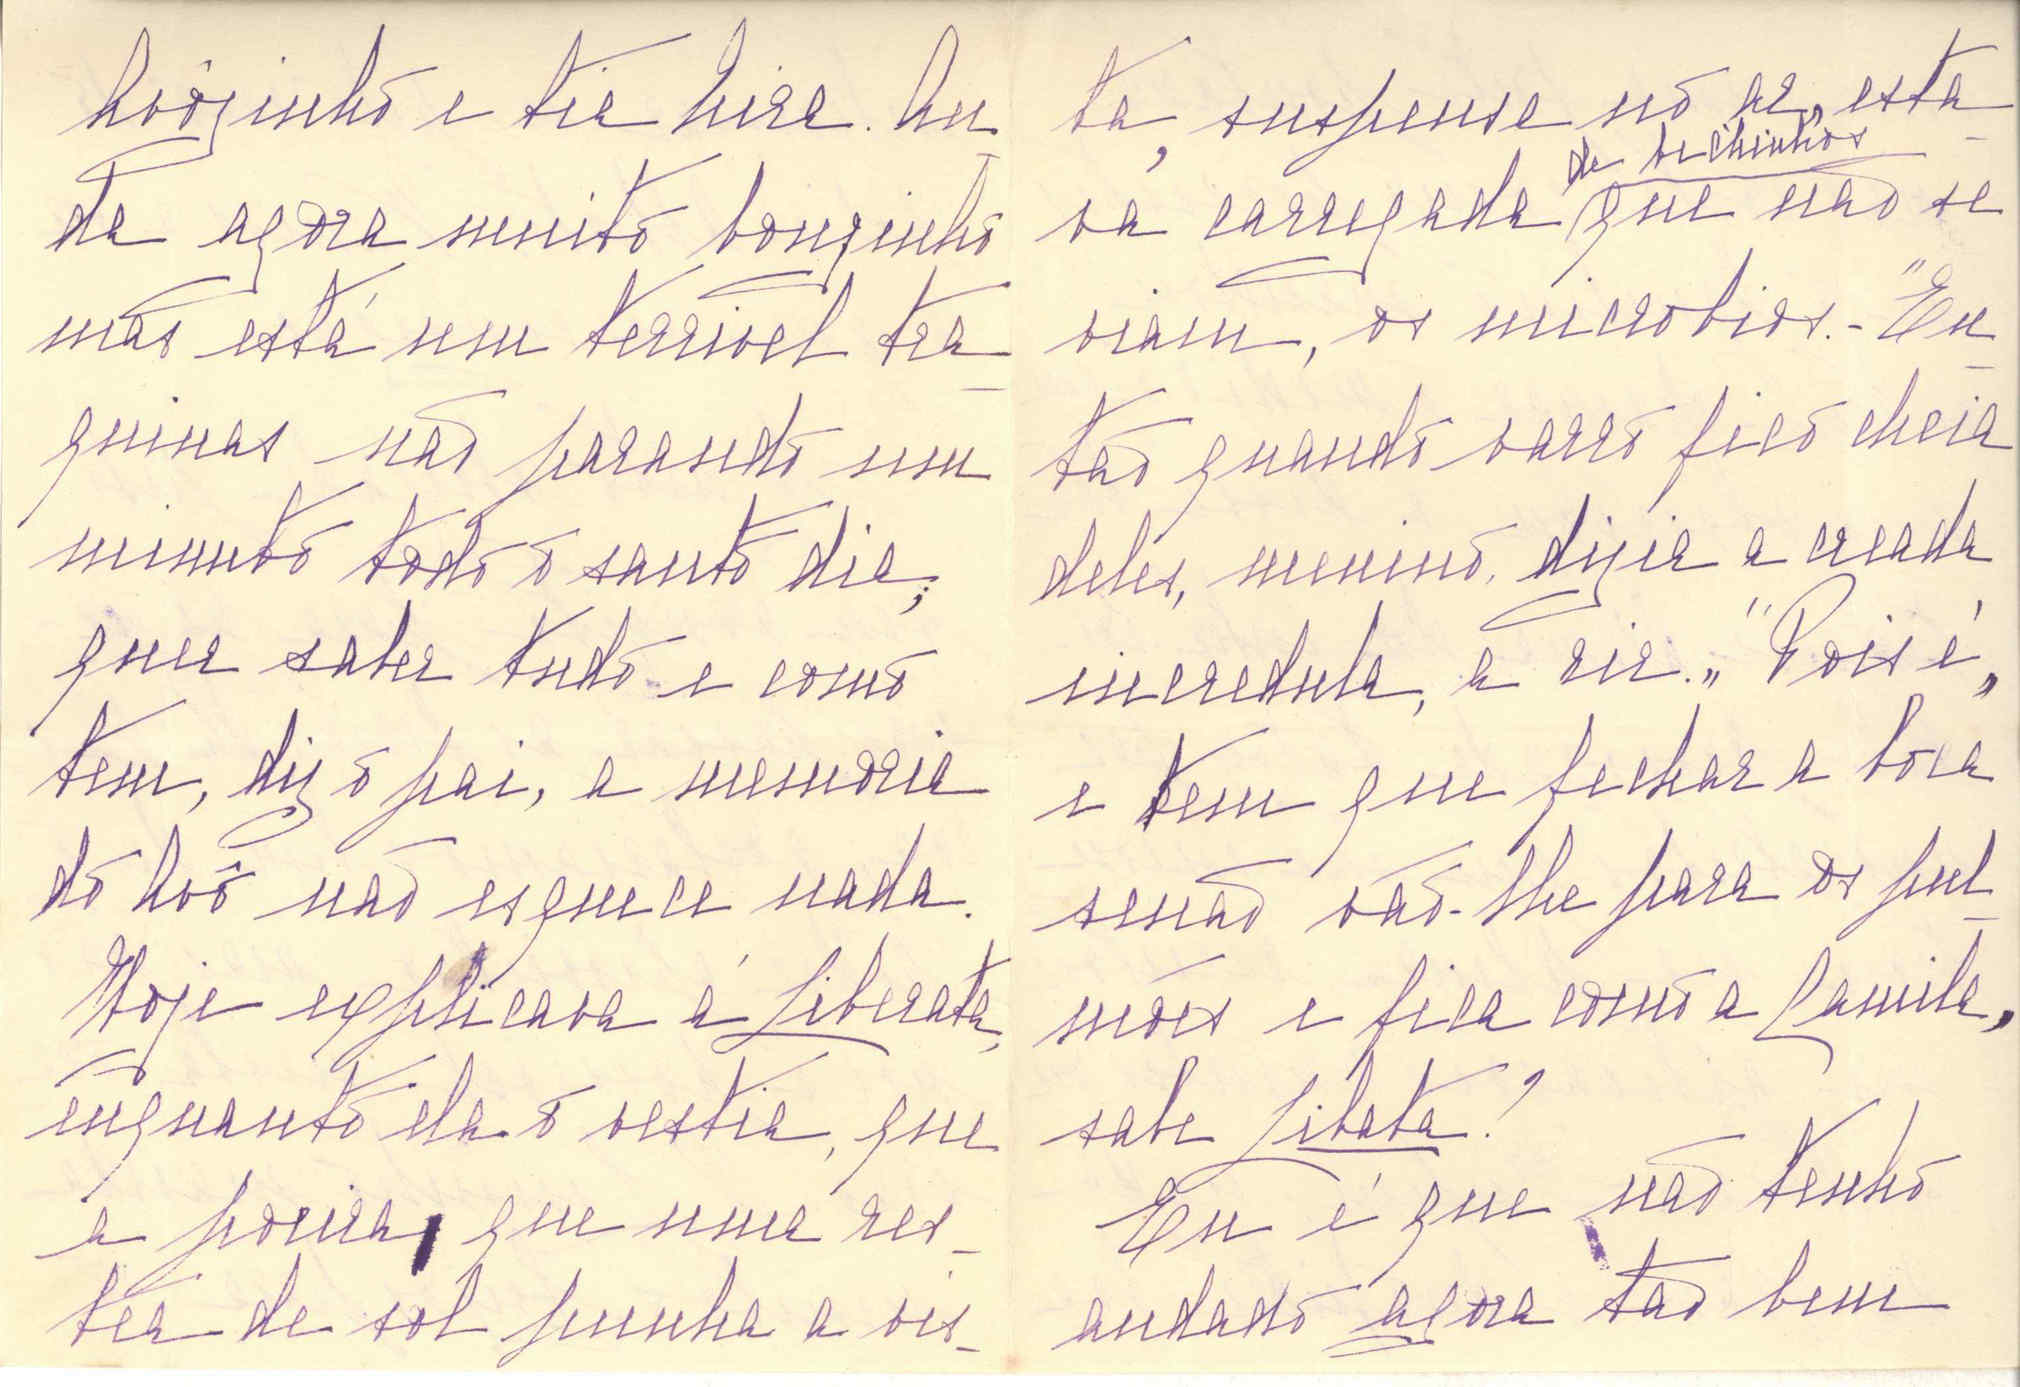 Avôzinho e tia Nira. An-
da agora muito bonzinho
mas está um terrivel tra-
quinas não parando um
minuto todo o santo dia;
quer saber tudo e como
tem, diz o pai, a memoria
do Avô não esquece nada.
Hoje explicava á Liberata,
enquanto ela o vestia, que
a poeira, que uma res-
tea de sol punha a vis-
ta, suspensa no ar, esta-
va carregada de bichinhos que não se
viam, os microbios. - "En-
tão quando varro fico cheia
deles, menino, dizia a creada
incredula, a rir." "Pois é,
e tem que fechar a boca
senão vão-lhe para os pul-
mões e fica como a Camila,
sabe Libata?
Eu é que não tenho
andado agora tão bem